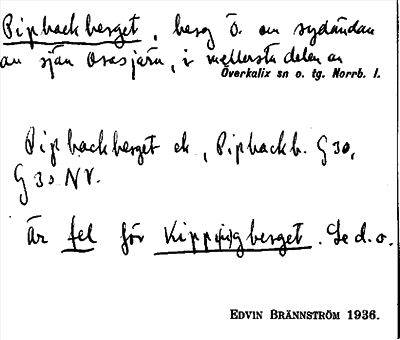 Pipbackberget, berg Ö. om sydändan
av sjön Orasjärv, i mellersta delen av
Överkalix sn o. tg. Norrb. l.
Pipbackberget ek, Pipbackb. G 30,
G 30 NV.
Är fel för Kippingberget. Se d. o.
EDVIN BRÄNNSTRÖM 1936.